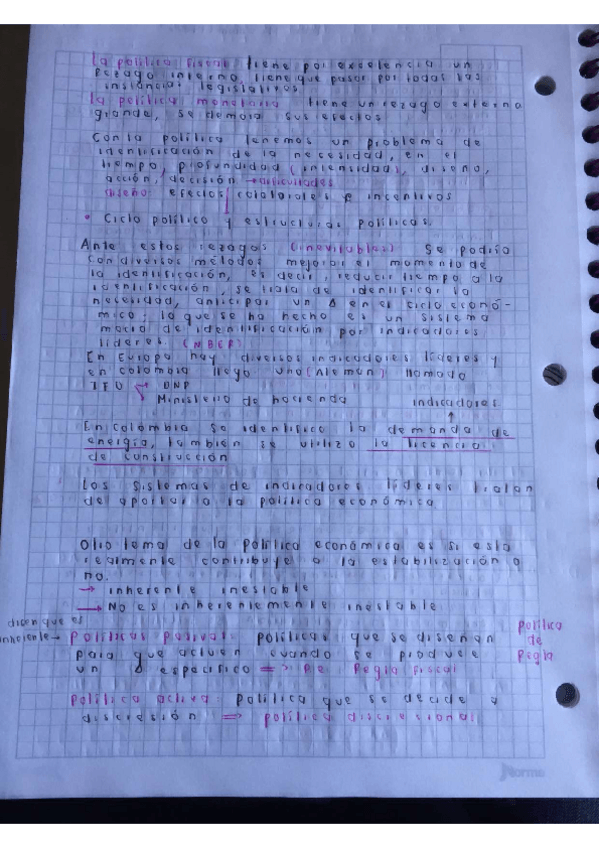 La política fiscal tiene por excelencia un
rezago interno, tiene que pasar por todas las
instancias legislativas
la política monetaria tiene un rezago externo
grande, se demora sus efectos
Con la política tenemos un problema de
identificación de la necesidad, en el
tiempo, profundidad (intensidad), diseño,
acción, decisión → dificultades
diseño: efectos colaterales e incentivos
• Ciclo político y estructuras políticas.
Ante estos rezagos (inevitables) Se podría
con diversos métodos mejorar el momento de
la identificación, es decir, reducir tiempo a la
identificación, se trata de identificar la
necesidad, anticipar un Δ en el ciclo econó-
mico; lo que se ha hecho es un sistema
macro de identificación por indicadores
líderes. (NBER)
En Europa hay diversos indicadores líderes y
en colombia llego uno (Alemán) llamado
IFO → DNP
→ Ministerio de hacienda
indicadores
En Colombia se identifico la demanda de
energía, también se utilizo la licencia
de construcción
Los sistemas de indicadores líderes tratan
de aportar a la política económica
Otro tema de la política económica es si esta
realmente contribuye a la estabilización o
no.
→ inherente inestable
→ No es inherentemente inestable
dicen que es
inherente → Políticas Pasivas: políticas que se diseñan
para que actuen cuando se produce
un Δ especifico => Re: Regla Fiscal
política
de
Regla
Política activa: política que se decide a
discresión => política discresional
Norma